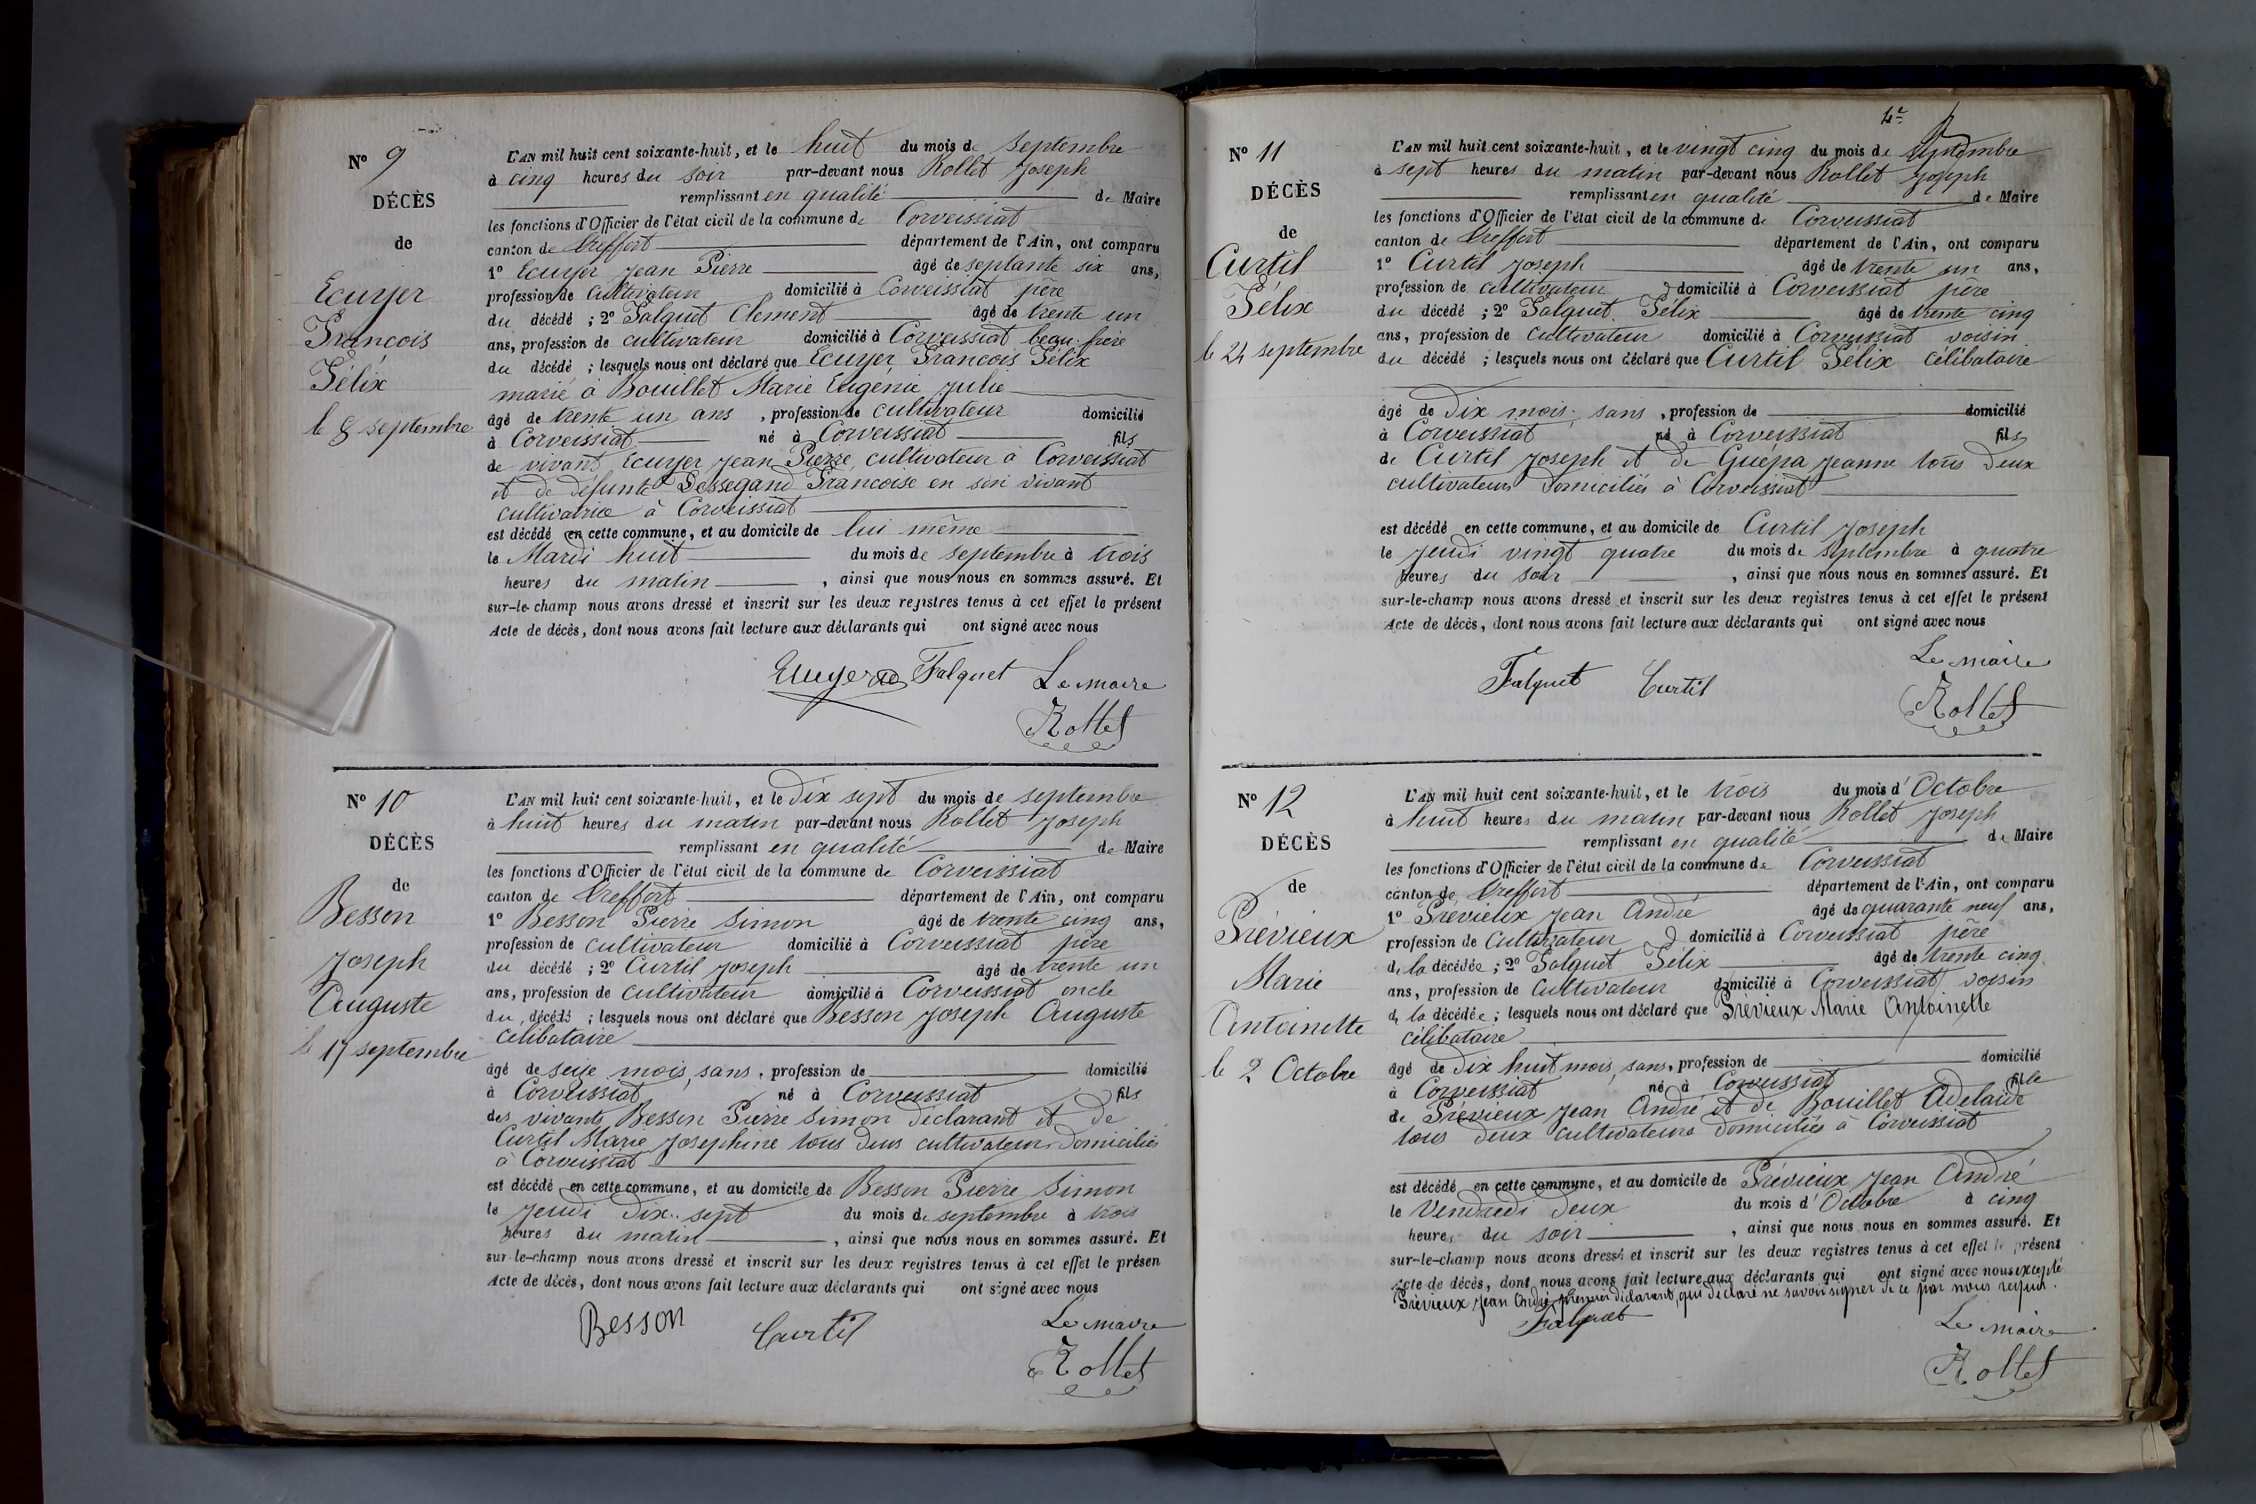 Nº 9
DÉCÈS
de
Ecuyer
François
Félix
le 8 septembre
L'AN mil huit cent soixante-huit, et le huit du mois de septembre
à cinq heures du soir par-devant nous Rollet Joseph
remplissant en qualité de Maire
les fonctions d'Officier de l'état civil de la commune de Corveissiat
canton de Treffort département de l'Ain, ont comparu
1º Ecuyer Jean Pierre âgé de septante six ans,
profession de cultivateur domicilié à Corveissiat père
du décédé ; 2º Falquet Clement âgé de trente un
ans, profession de cultivateur domicilié à Corveissiat beau-frère
du décédé ; lesquels nous ont déclaré que Ecuyer François Félix
marié à Bouillet Marie Eugénie Julie
âgé de trente un ans , profession de cultivateur domicilié
à Corveissiat né à Corveissiat fils
de vivant Ecuyer Jean Pierre, cultivateur à Corveissiat
et de défunte Françoise en son vivant
cultivatrice à Corveissiat
est décédé en cette commune, et au domicile de lui même
le Mardi huit du mois de septembre à trois
heures du matin , ainsi que nous nous en sommes assuré. Et
sur-le-champ nous avons dressé et inscrit sur les deux registres tenus à cet effet le présent
Acte de décès, dont nous avons fait lecture aux déclarants qui ont signé avec nous
Ecuyer Falquet Le maire
Rollet
Nº 10
DÉCÈS
de
Besson
Joseph
Auguste
le 17 septembre
L'AN mil huit cent soixante-huit, et le dix sept du mois de septembre
à huit heures du matin par-devant nous Rollet Joseph
remplissant en qualité de Maire
les fonctions d'Officier de l'état civil de la commune de Corveissiat
canton de Treffort département de l'Ain, ont comparu
1º Besson Pierre Simon âgé de trente cinq ans,
profession de cultivateur domicilié à Corveissiat père
du décédé ; 2º Curtil Joseph âgé de trente un
ans, profession de cultivateur domicilié à Corveissiat oncle
du décédé ; lesquels nous ont déclaré que Besson Joseph Auguste
célibataire
âgé de seize mois, sans , profession de domicilié
à Corveissiat né à Corveissiat fils
des vivants Besson Pierre Simon déclarant et de
Curtil Marie Josephine tous deux cultivateurs domiciliés
à Corveissiat
est décédé en cette commune, et au domicile de Besson Pierre Simon
le jeudi dix-sept du mois de septembre à trois
heures du matin , ainsi que nous nous en sommes assuré. Et
sur-le-champ nous avons dressé et inscrit sur les deux registres tenus à cet effet le présen
Acte de décès, dont nous avons fait lecture aux déclarants qui ont signé avec nous
Besson Curtil Le maire
Rollet
Nº 11
DÉCÈS
de
Curtil
Félix
le 24 septembre
L'AN mil huit cent soixante-huit, et le vingt cinq du mois de septembre
à sept heures du matin par-devant nous Rollet Joseph
remplissant en qualité de Maire
les fonctions d'Officier de l'état civil de la commune de Corveissiat
canton de Treffort département de l'Ain, ont comparu
1º Curtil Joseph âgé de trente un ans,
profession de cultivateur domicilié à Corveissiat père
du décédé ; 2º Falquet Félix âgé de trente cinq
ans, profession de cultivateur domicilié à Corveissiat voisin
du décédé ; lesquels nous ont déclaré que Curtil Félix célibataire
âgé de dix mois, sans , profession de domicilié
à Corveissiat né à Corveissiat fils
de Curtil Joseph et de Guépa Jeanne tous deux
cultivateurs domiciliés à Corveissiat
est décédé en cette commune, et au domicile de Curtil Joseph
le jeudi vingt quatre du mois de septembre à quatre
heures du soir , ainsi que nous nous en sommes assuré. Et
sur-le-champ nous avons dressé et inscrit sur les deux registres tenus à cet effet le présent
Acte de décès, dont nous avons fait lecture aux déclarants qui ont signé avec nous
Falquet Curtil Le maire
Rollet
Nº 12
DÉCÈS
de
Prévieux
Marie
Antoinette
le 2 Octobre
L'AN mil huit cent soixante-huit, et le trois du mois d'Octobre
à huit heures du matin par-devant nous Rollet Joseph
remplissant en qualité de Maire
les fonctions d'Officier de l'état civil de la commune de Corveissiat
canton de Treffort département de l'Ain, ont comparu
1º Prévieux Jean André âgé de quarante neuf ans,
profession de cultivateur domicilié à Corveissiat père
de la décédée ; 2º Falquet Félix âgé de trente cinq
ans, profession de cultivateur domicilié à Corveissiat voisin
de la décédée ; lesquels nous ont déclaré que Prévieux Marie Antoinette
célibataire
âgé de dix huit mois, sans , profession de domicilié
à Corveissiat né à Corveissiat fille
de Prévieux Jean André et de Bouillet Adelaïde
tous deux cultivateurs domiciliés à Corveissiat
est décédé en cette commune, et au domicile de Prévieux Jean André
le Vendredi deux du mois d'Octobre à cinq
heures du soir , ainsi que nous nous en sommes assuré. Et
sur-le-champ nous avons dressé et inscrit sur les deux registres tenus à cet effet le présent
Acte de décès, dont nous avons fait lecture aux déclarants qui ont signé avec nous excepté
Prévieux Jean André, premier déclarant, qui déclare ne savoir signer de ce par nous requis.
Falquet Le maire
Rollet